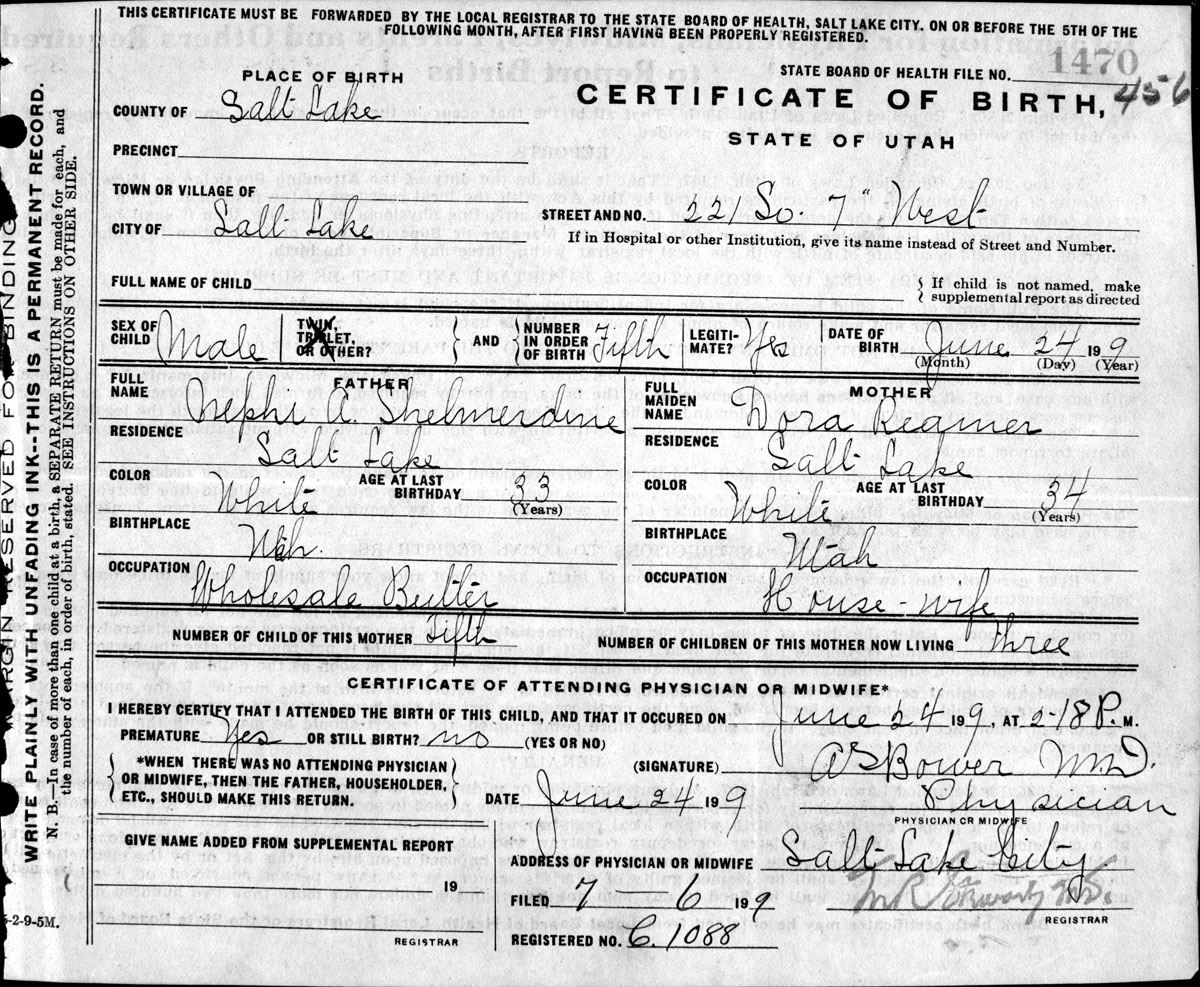 THIS CERTIFICATE MUST BE FORWARDED BY THE LOCAL REGISTRAR TO THE STATE BOARD OF HEALTH, SALT LAKE CITY, ON OR BEFORE THE 5TH OF THE
FOLLOWING MONTH, AFTER FIRST HAVING BEEN PROPERLY REGISTERED.
MARGIN RESERVED FOR BINDING
WRITE PLAINLY WITH UNFADING INK--THIS IS A PERMANENT RECORD.
N. B.—In case of more than one child at a birth, a SEPARATE RETURN must be made for each, and
the number of each, in order of birth, stated. SEE INSTRUCTIONS ON OTHER SIDE.
STATE BOARD OF HEALTH FILE NO. 1470
456
PLACE OF BIRTH
CERTIFICATE OF BIRTH,
STATE OF UTAH
COUNTY OF Salt Lake
PRECINCT
TOWN OR VILLAGE OF
CITY OF Salt Lake
STREET AND NO. 22 So 7" West
If in Hospital or other Institution, give its name instead of Street and Number.
FULL NAME OF CHILD
{ If child is not named, make
supplemental report as directed
SEX OF CHILD Male TWIN, TRIPLET, OR OTHER? } AND { NUMBER IN ORDER OF BIRTH Fifth LEGITI-MATE? Yes DATE OF BIRTH June 24 19 9
(Month) (Day) (Year)
FATHER
FULL NAME Nephi A. Shelmerdine
RESIDENCE Salt Lake
COLOR White AGE AT LAST BIRTHDAY 33
(Years)
BIRTHPLACE Utah.
OCCUPATION Wholesale Butter
MOTHER
FULL MAIDEN NAME Dora Reamer
RESIDENCE Salt Lake
COLOR White AGE AT LAST BIRTHDAY 34
(Years)
BIRTHPLACE Utah
OCCUPATION House-wife
NUMBER OF CHILD OF THIS MOTHER Fifth NUMBER OF CHILDREN OF THIS MOTHER NOW LIVING Three
CERTIFICATE OF ATTENDING PHYSICIAN OR MIDWIFE*
I HEREBY CERTIFY THAT I ATTENDED THE BIRTH OF THIS CHILD, AND THAT IT OCCURED ON June 24 19 9, AT 2-18 P. M.
PREMATURE Yes OR STILL BIRTH? no (YES OR NO)
{ *WHEN THERE WAS NO ATTENDING PHYSICIAN
OR MIDWIFE, THEN THE FATHER, HOUSEHOLDER,
ETC., SHOULD MAKE THIS RETURN. }
(SIGNATURE) Bower M.D.
DATE June 24 19 9 Physician
PHYSICIAN OR MIDWIFE
GIVE NAME ADDED FROM SUPPLEMENTAL REPORT
19
REGISTRAR
ADDRESS OF PHYSICIAN OR MIDWIFE Salt Lake City
FILED 7-6 19 9
REGISTRAR
REGISTERED NO. C. 1088
5-2-9-5M.